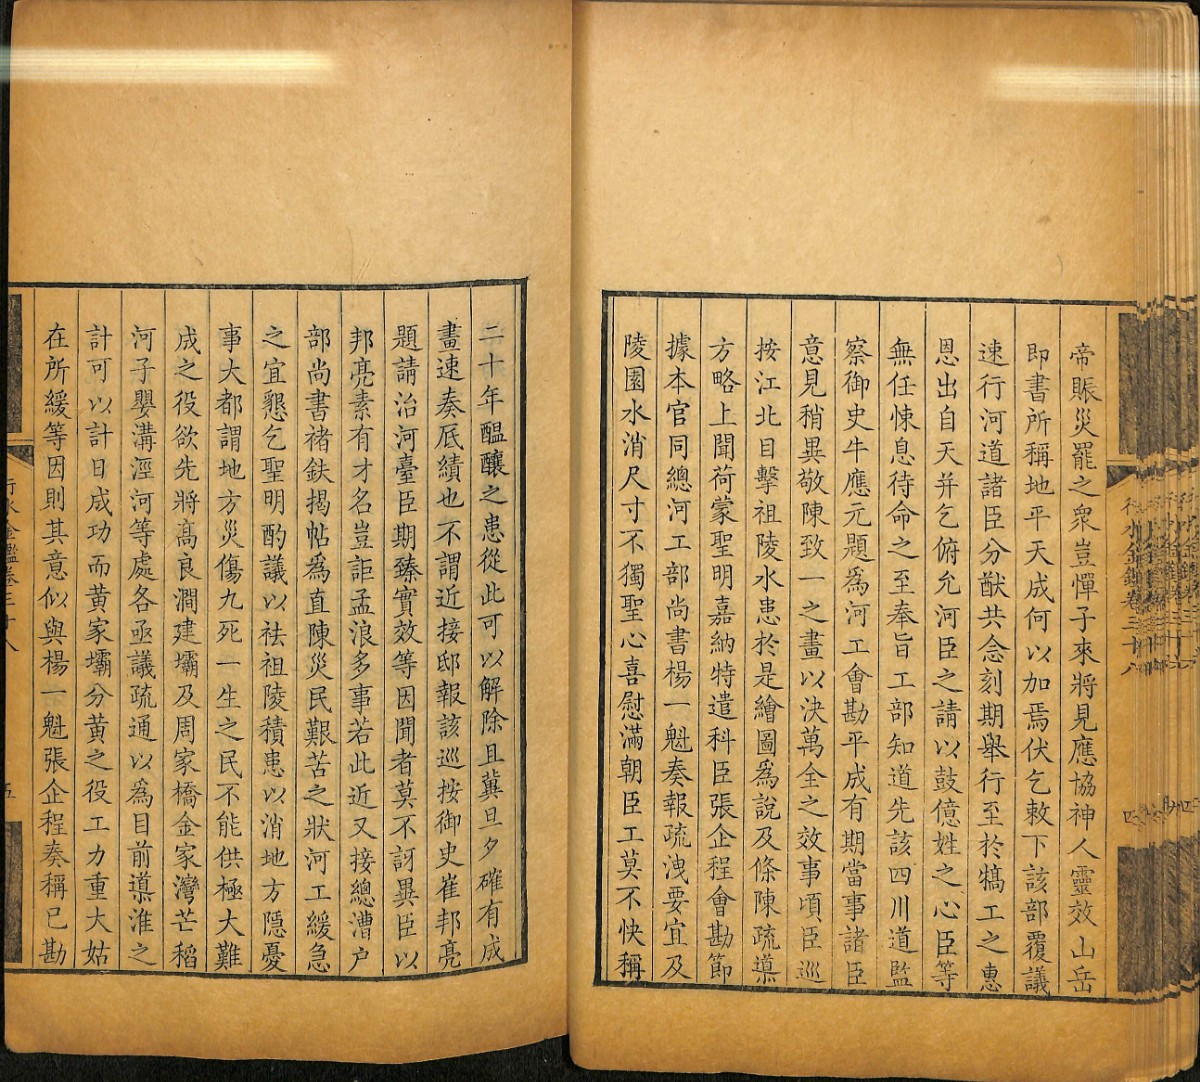 帝賑災罷之衆豈憚子來將見應協神人靈效山岳
即書所稱地平天成何以加焉伏乞敕下該部覆議
速行河道諸臣分猷共念刻期舉行至於犒工之惠
恩出自天并乞俯允河臣之請以鼓億姓之心臣等
無任悚息待命之至奉旨工部知道先該四川道監
察御史牛應元題為河工會勘平成有期當事諸臣
意見稍異敬陳致一之畫以決萬全之效事頃臣巡
按江北目擊祖陵水患於是繪圖為說及條陳疏導
方略上聞荷蒙聖明嘉納特遣科臣張企程會勘節
據本官同總河工部尚書楊一魁奏報疏洩要宜及
陵園水消尺寸不獨聖心喜慰滿朝臣工莫不快稱
行水金鑑卷三十八
四
二十年醞釀之患從此可以解除且冀旦夕確有成
畫速奏厎績也不謂近接邸報該巡按御史崔邦亮
題請治河臺臣期臻實效等因聞者莫不訝異臣以
邦亮素有才名豈詎孟浪多事若此近又接總漕户
部尚書褚鈇揭帖為直陳災民艱苦之狀河工緩急
之宜懇乞聖明酌議以祛祖陵積患以消地方隱憂
事大都謂地方災傷九死一生之民不能供極大難
成之役欲先將高良澗建壩及周家橋金家灣芒稻
河子嬰溝涇河等處各亟議疏通以為目前導淮之
計可以計日成功而黄家壩分黄之役工力重大姑
在所緩等因則其意似與楊一魁張企程奏稱已勘
行水金鑑卷三十八
五